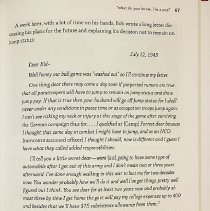 "What do you know, I'm a pvt!" 67
A week later, with a lot of time on his hands, Bob wrote a long letter dis-
cussing his plans for the future and explaining his decision not to remain on
jump status:
July 22, 1945
Dear Kid-
Well honey our ball game was "washed out" so I'll continue my letter.
One thing dear there may come a day soon if purported rumors are true
that all paratroopers will have to jump to remain on jump status and draw
jump pay. If that is true then your husband will go off jump status for I shall
never under any conditions in peace time or as occupation troops jump again.
I can't see risking my neck or injury at this stage of the game after surviving
the German campaign that ... I qualified at Kampf Forrest dear because
I thought that some day in combat I might have to jump, and as an NCO
[noncommissioned officer] I thought I should, now is different and I guess I
have what they called added responsibilities.
I'll tell you a little secret dear—were going to have some type of
automobile after I get out of this army and I don't mean one or three years
afterward. I've done enough walking in this war to last me for two decades
now. You wonder probably how we'll do it and well I've got things pretty well
figured out I think. You see dear for at least two years now and probably at
most three by time I get home the gov't will pay my college expenses up to 400
and besides that we'll have $75 subsistence allowance from them.